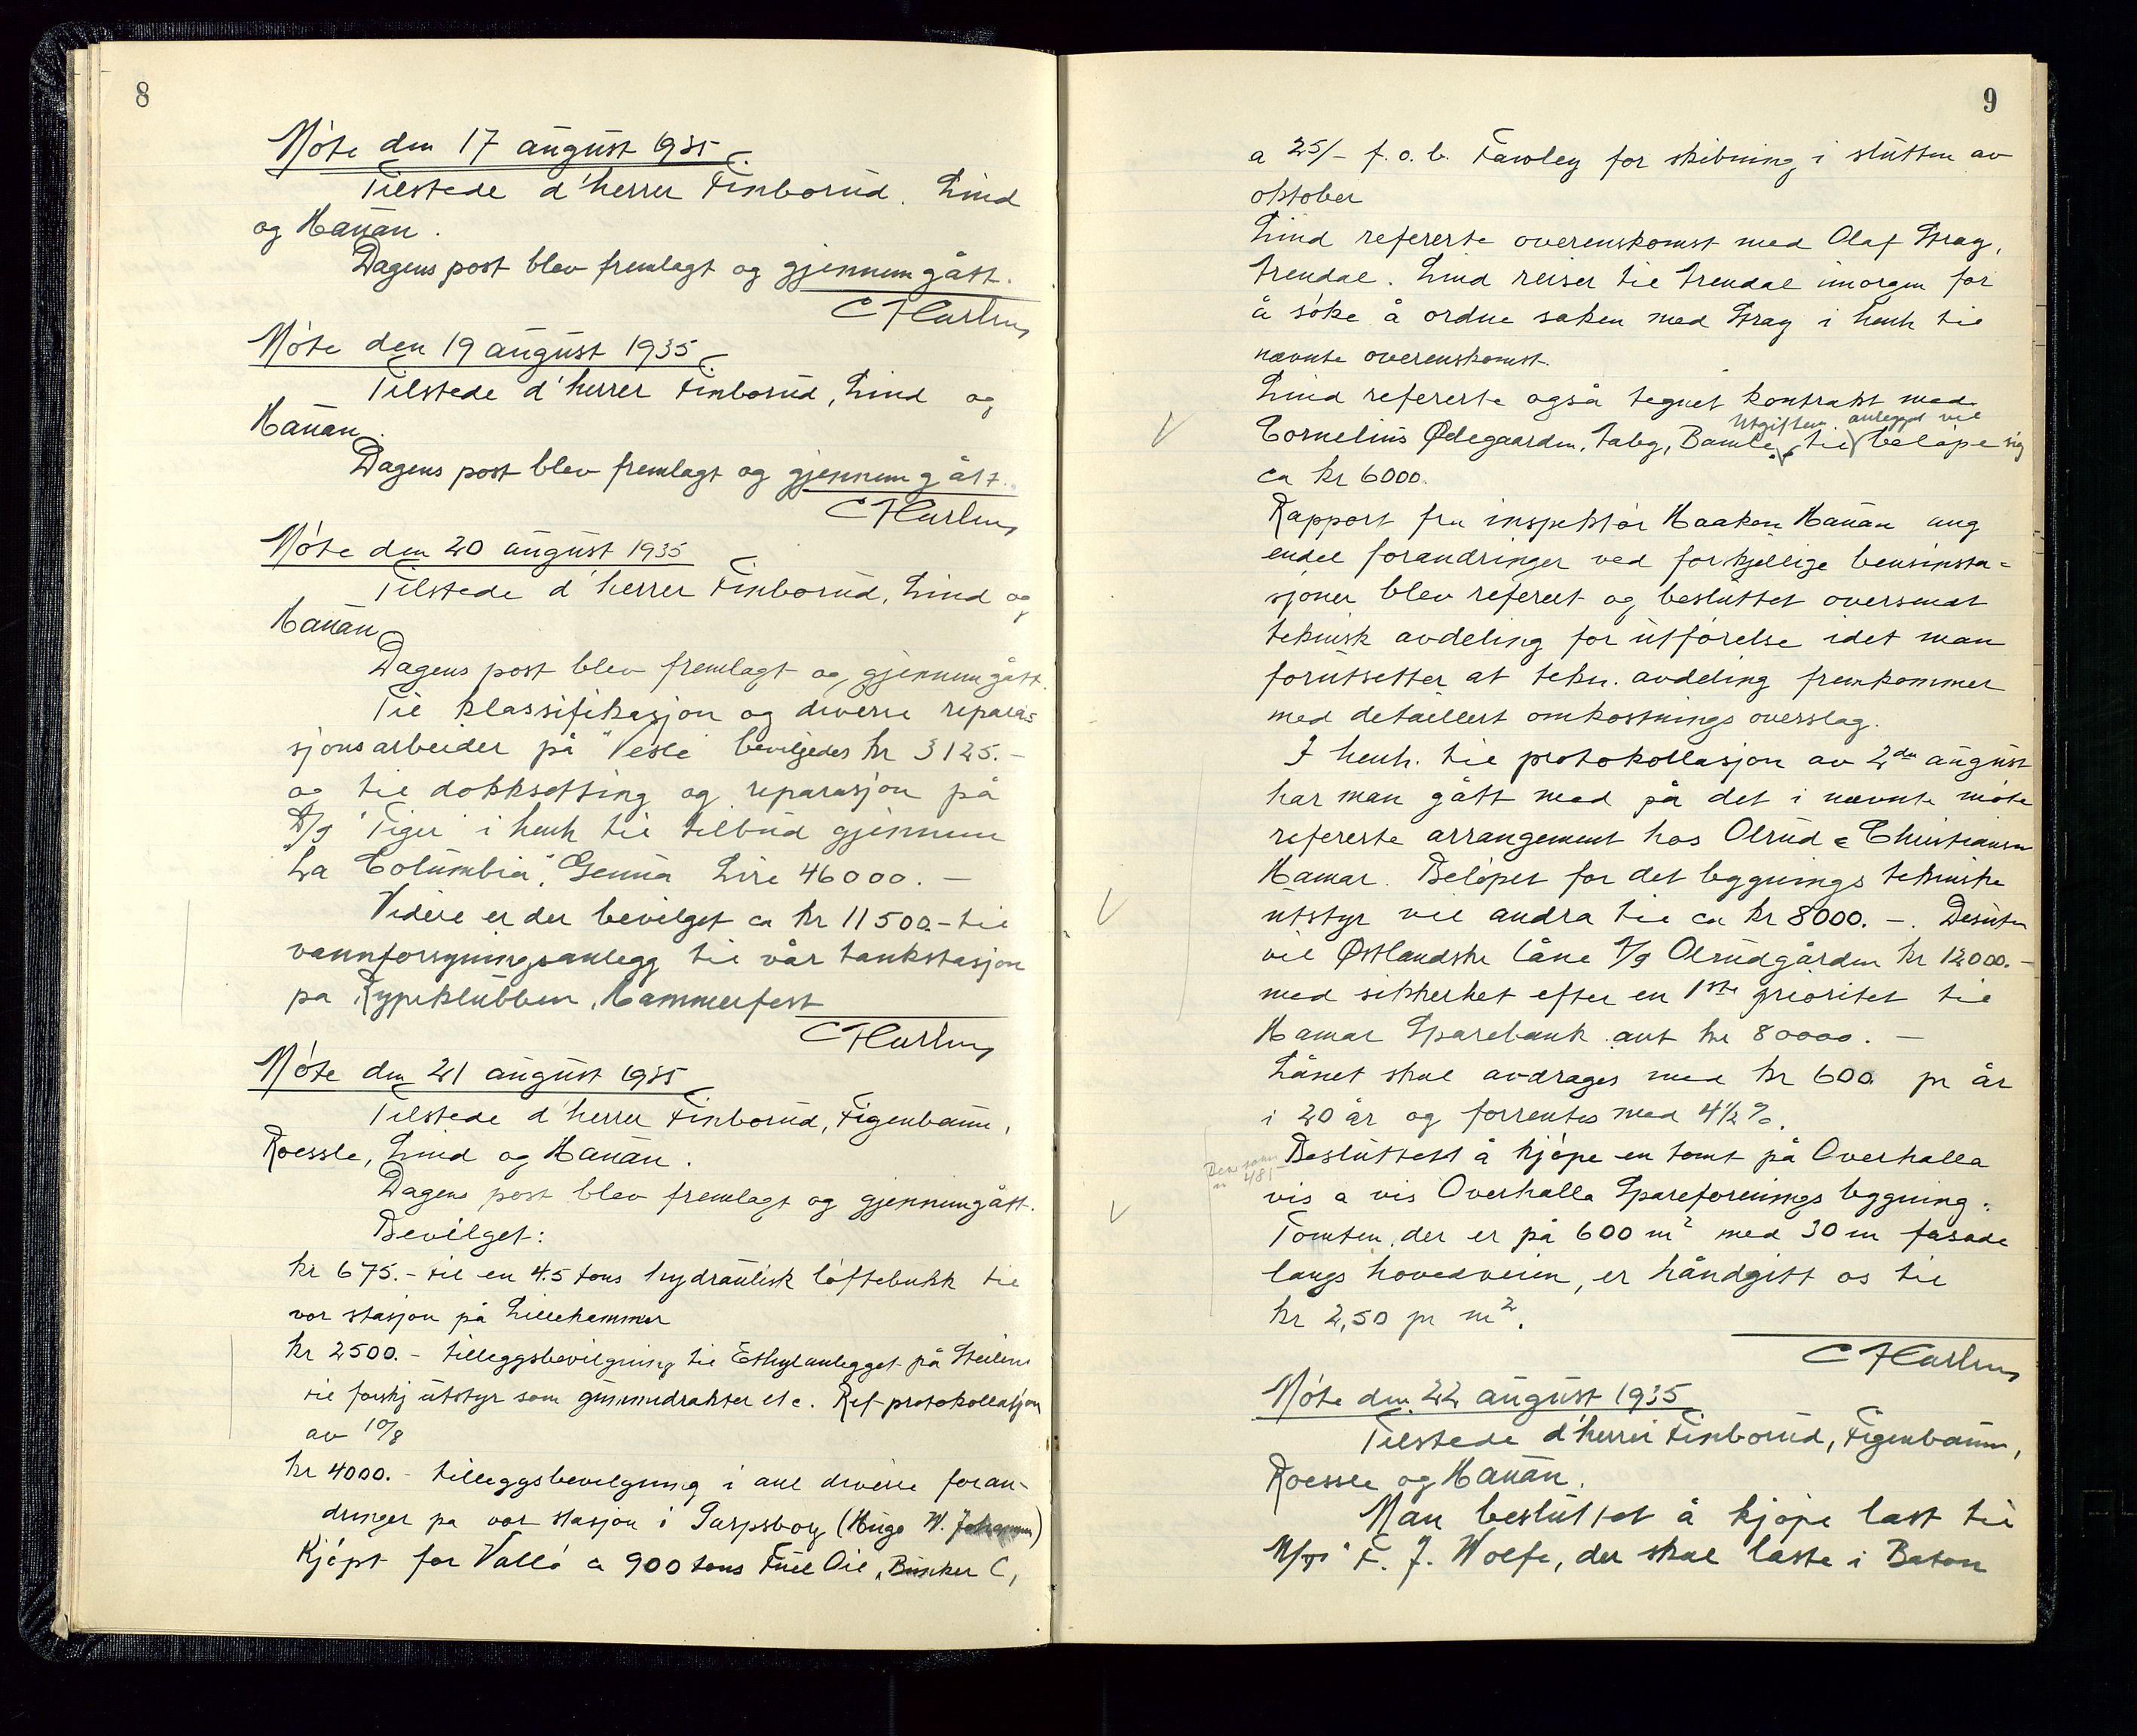 8
Møte den 17 august 1935.
Tilstede d'herrer Finborud, Lind
og Hauan.
Dagens post blev fremlagt og gjennemgått.
Møte den 19 august 1935.
Tilstede d'herrer Finborud, Lind og
Hauan.
Dagens post blev fremlagt og gjennemgått.
Møte den 20 august 1935
Tilstede d'herrer Finborud, Lind og
Hauan
Dagens post blev fremlagt og gjennemgått.
Til klassifikasjon og diverse repara=
sjonsarbeider på "Vesle" beviljedes kr 3125.-
og til dokksetting og reparasjon på
D/S "Tiger" i henh til tilbud gjennem
"La Columbia", Genua Lire 46000.-
Videre er der bevilget ca kr 11500.- til
vannforsyningsanlegg til vår tankstasjon
på Rypeklubben, Hammerfest
Møte den 21 august 1935
Tilstede d'herrer Finborud, Figenbaum,
Roessle, Lind og Hauan.
Dagens post blev fremlagt og gjennemgått.
Bevilget:
kr 675.- til en 4.5 tons hydraulisk løftebukk til
vor stasjon på Lillehammer
kr 2500.- tilleggsbevilgning til Ethylanlegget på Steilene
til forskj utstyr som gummidrakter etc. Ref protokollasjon
av 10/8
kr 4000.- tilleggsbevilgning i anl diverse foran-
dringer på vor stasjon i Sarpsborg (Hugo W. )
Kjøpt for Vallø ca 900 tons Fuel Oil, Bunker C,
9
a 25/- f.o.b. Fawley for skibning i slutten av
oktober
Lind refererte overenskomst med Olaf Krag,
Arendal. Lind reiser til Arendal imorgen for
å søke å ordne saken med Krag i henh til
nævnte overenskomst.
Lind refererte også tegnet kontrakt med
Utgiften anlegget vil
Cornelius Ødegaarden, Bamble, til beløpe sig
ca kr 6000.
Rapport fra inspektør Haakon Hauan ang
endel forandringer ved forskjellige bensinsta=
sjoner blev referert og besluttet oversendt
teknisk avdeling for utførelse idet man
forutsetter at tekn. avdeling fremkommer
med detaillert omkostnings overslag.
I henh. til protokollasjon av 2den august
har man gått med på det i nævnte møte
refererte arrangement hos Olrud & Christiansen
Hamar. Beløpet for det bygnings tekniske
utstyr vil andra til ca kr 8000.-. Desuten
vil Østlandske låne A/S Olrudgården kr 12000.-
med sikkerhet efter en 1ste prioritet til
Hamar Sparebank ant kr 80000.-
Lånet skal avdrages med kr 600 pr år
i 20 år og forrentes med 4½%.
Besluttett å kjøpe en tomt på Overhalla
vis a vis Overhalla Spareforenings bygning.
Tomten, der er på 600 m² med 30 m fasade
langs hovedveien, er håndgitt os til
kr 2,50 pr m².
Møte den 22 august 1935
Tilstede d'herrer Finborud, Figenbaum,
Roessle og Hauan.
Man besluttet å kjøpe last til
M/T "F. J. Wolfe, der skal laste i Baton